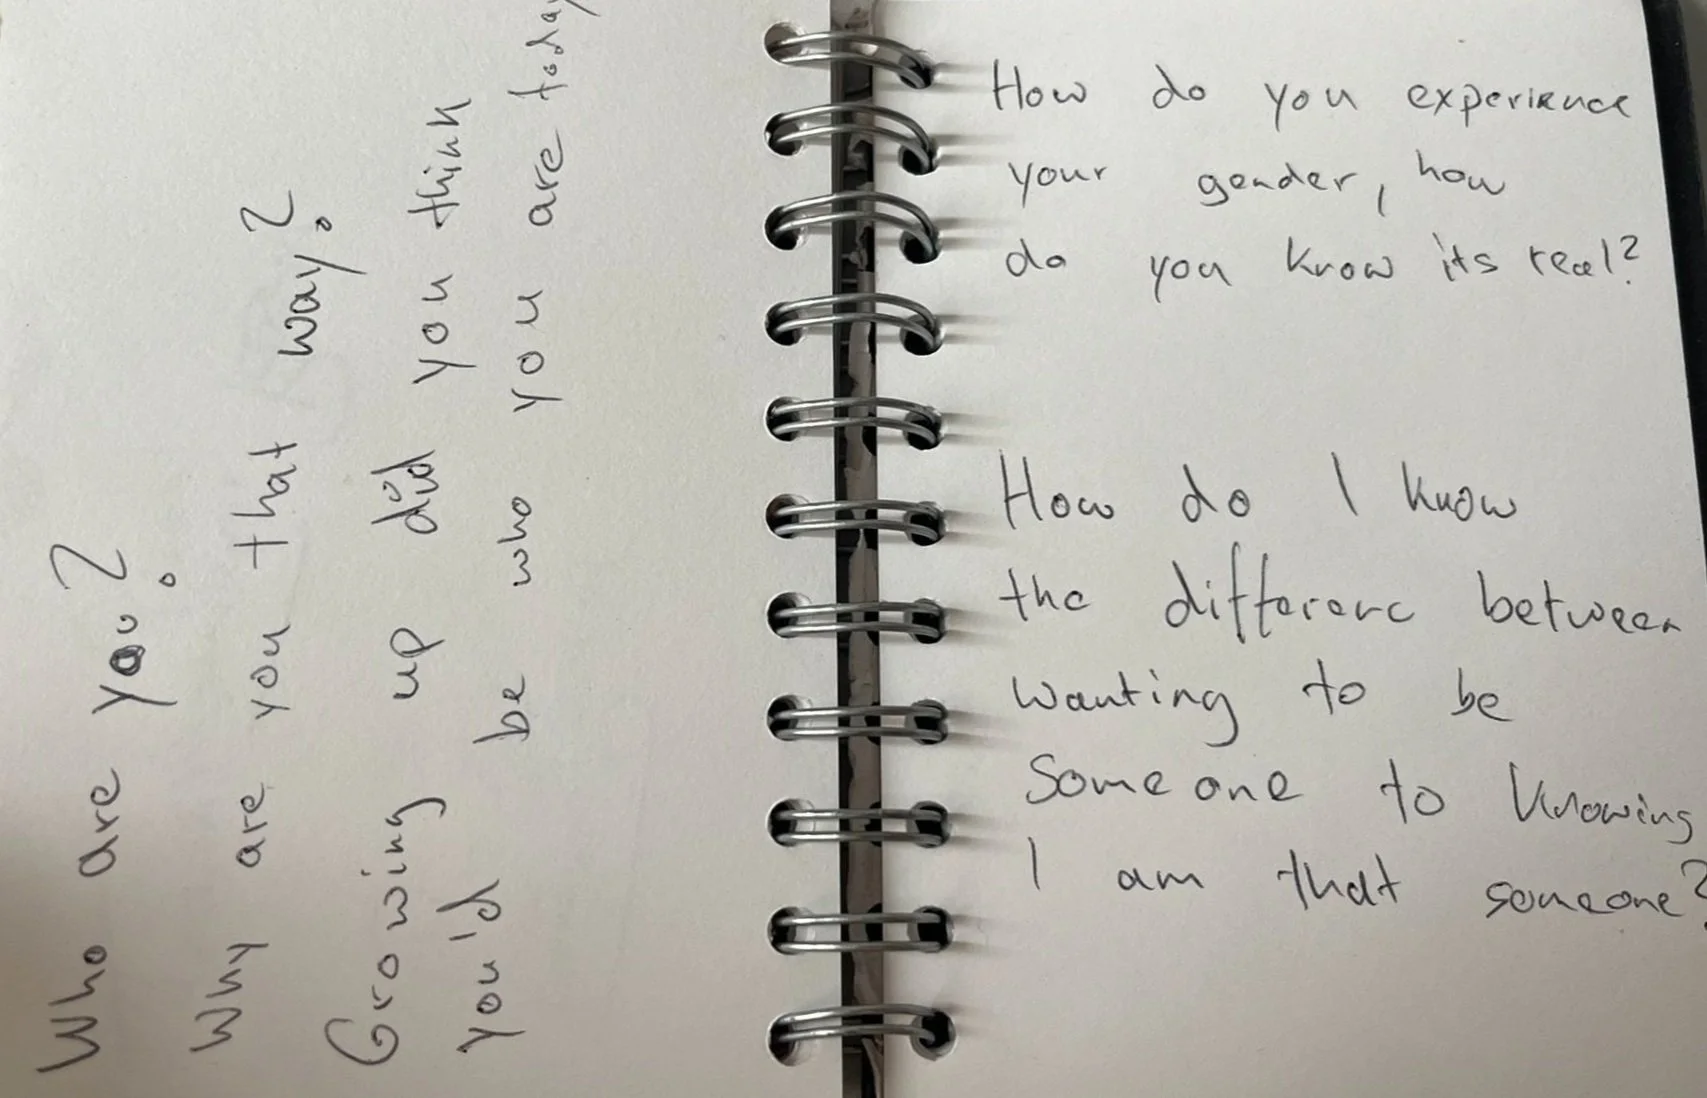 Who are you?
Why are you that way?
Growing up did you think
you'd be who you are today
How do you experience
your gender, how
do you know its real?
How do I know
the differenc between
wanting to be
Someone to knowing
I am that someone?